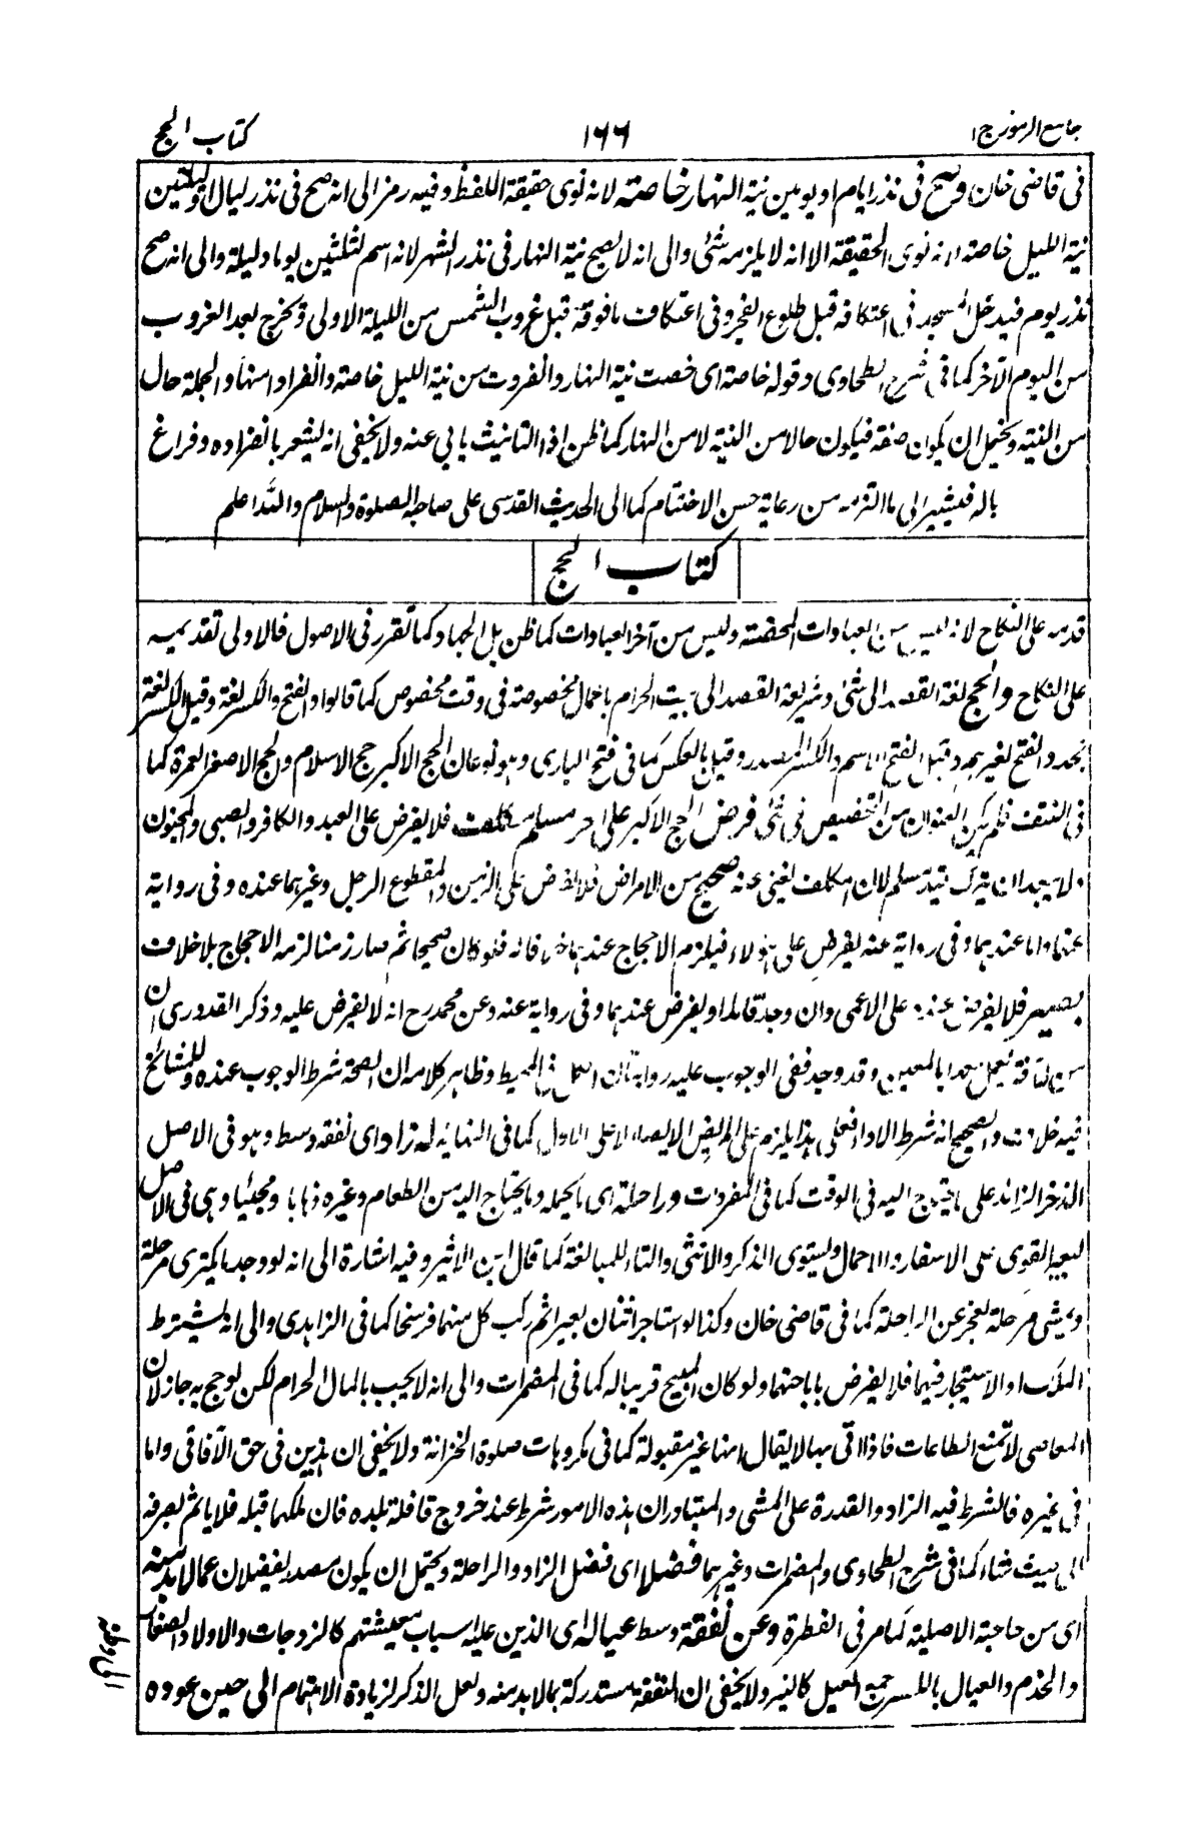 جامع الرموز ج۱
۱۶۶
كتاب الحج
فى قاضى خان وصح فى نذر ايام او يومين نية النهار خاصة لانه نوى حقيقة اللفظ وفيه رمز الى انه صح فى نذر ليال او ليلتين
نية الليل خاصة لانه نوى الحقيقة الا انه لا يلزمه شئ والى انه لا يصح نية النهار فى نذر الشهر لانه اسم لثلثين يوما وليلة والى انه صح
نذر يوم فيدخل المسجد فى اعتكافه قبل طلوع الفجر وفى اعتكاف ما فوقه قبل غروب الشمس من الليلة الاولى ويخرج بعد الغروب
من اليوم الآخر كما فى شرح الطحاوى وقوله خاصة اى خصت نية النهار وانفردت من نية الليل خاصة وانفرادا منها والجملة حال
من النية ويحتمل ان يكون صفة فيكون حالا من النية لا من النهار كما ظن اذ التانيث يابى عنه ولا يخفى انه يشعر بانفراده وفراغ
باله فيشير الى ما التزمه من رعاية حسن الاختتام كما الى الحديث القدسى على صاحبه الصلوة والسلام والله اعلم
كتاب الحج
قدمه على النكاح لانه ليس من العبادات المحضة وليس من آخر العبادات كما ظن بل الجهاد كما تقرر فى الاصول فالاولى تقديمه
على النكاح والحج لغة القصد الى شئ وشريعة القصد الى بيت الحرام باعمال مخصوصة فى وقت مخصوص كما قالوا والفتح والكسر لغة وقيل الكسر لغة
نجد والفتح لغيرهم وقيل الفتح الاسم والكسر المصدر وقيل بالعكس كما فى فتح البارى وهو نوعان الحج الاكبر حج الاسلام والحج الاصغر العمرة كما
فى النتف فلم يكن العنوان من التخصيص فى شئ فرض الحج الاكبر على حر مسلم مكلف فلا يفرض على العبد والكافر والصبى والمجنون
ولا يبعد ان يترك قيد مسلم لان المكلف يغنى عنه صحيح من الامراض فلا يفرض على الزمن والمقطوع الرجل وغيرهما عنده وفى رواية
عنهما واما عندهما وفى رواية عنه يفرض على هؤلاء فيلزم الاحجاج عندهما خلافا له فلو كان صحيحا ثم صار زمنا لزمه الاحجاج بلا خلاف
بصير فلا يفرض عنده على الاعمى وان وجد قائدا ويفرض عندهما وفى رواية عنه وعن محمد رح انه لا يفرض عليه وذكر القدورى ان
وقد وجد ففى الوجوب عليه روايتان الكل فى المحيط وظاهر كلامه ان الصحة شرط الوجوب عنده وللمشائخ
فيه خلاف والصحيح انه شرط الاداء فعلى هذا يلزم على المريض الايصاء لا على الاول كما فى النهاية له زاد اى نفقة وسط وهو فى الاصل
الذخر الزائد على ما يحتاج اليه فى الوقت كما فى المفردات وراحلة اى ما يحمله وما يحتاج اليه من الطعام وغيره ذهابا ومجيئا وهى فى الاصل
البعير القوى على الاسفار والاحمال ويستوى الذكر والانثى والتاء للمبالغة كما قال ابن الاثير وفيه اشارة الى انه لو وجد ما يكترى مرحلة
ويمشى مرحلة لعجز عن الراحلة كما فى قاضى خان وكذا لو استاجر اثنان بعيرا ثم ركب كل منهما فرسخا كما فى الزاهدى والى انه يشترط
الملك او الاستيجار فيهما فلا يفرض باباحتهما ولو كان المبيح قريبا له كما فى المضمرات والى انه لا يجب بالمال الحرام لكن لو حج به جاز لان
المعاصى لا تمنع الطاعات فاذا اتى بها لا يقال انها غير مقبولة كما فى مكروهات صلوة الخزانة ولا يخفى ان هذين فى حق الآفاقى واما
فى غيره فالشرط فيه الزاد والقدرة على المشى والمتبادر ان هذه الامور شرط عند خروج قافلة بلده فان ملكها قبله فلا ياثم بصرفه
الى حيث شاء كما فى شرح الطحاوى والمضمرات وغيرهما فضلا اى فضل الزاد والراحلة ويحتمل ان يكون مصدرا يفضلان عما لا بد منه
اى من حاجته الاصلية كما مر فى الفطرة وعن نفقة وسط عياله اى الذين عليه اسباب معيشتهم كالزوجات والاولاد الصغار
والخدم والعيال بالكسر جمع العيل كالنير ولا يخفى ان النفقة مستدركة بما لا بد منه ولعل الذكر لزيادة الاهتمام الى حين عوده